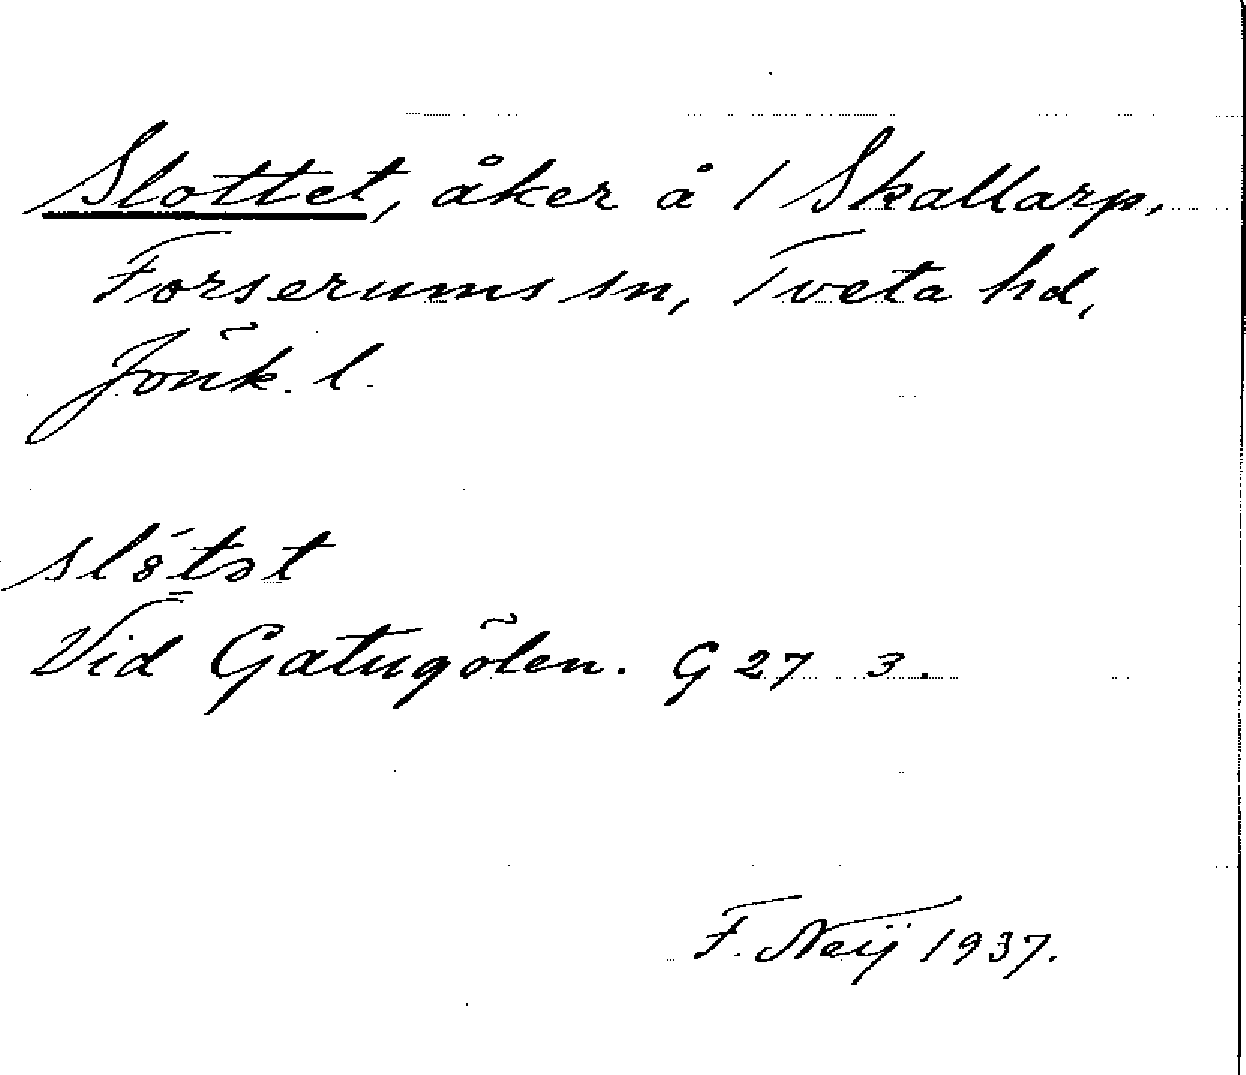 Slottet, åker å 1 Skallarp,
Forserums sn, Tveta hd,
Jönk. l.
Vid Gatugölen. G 27 3.
F. Neij 1937.